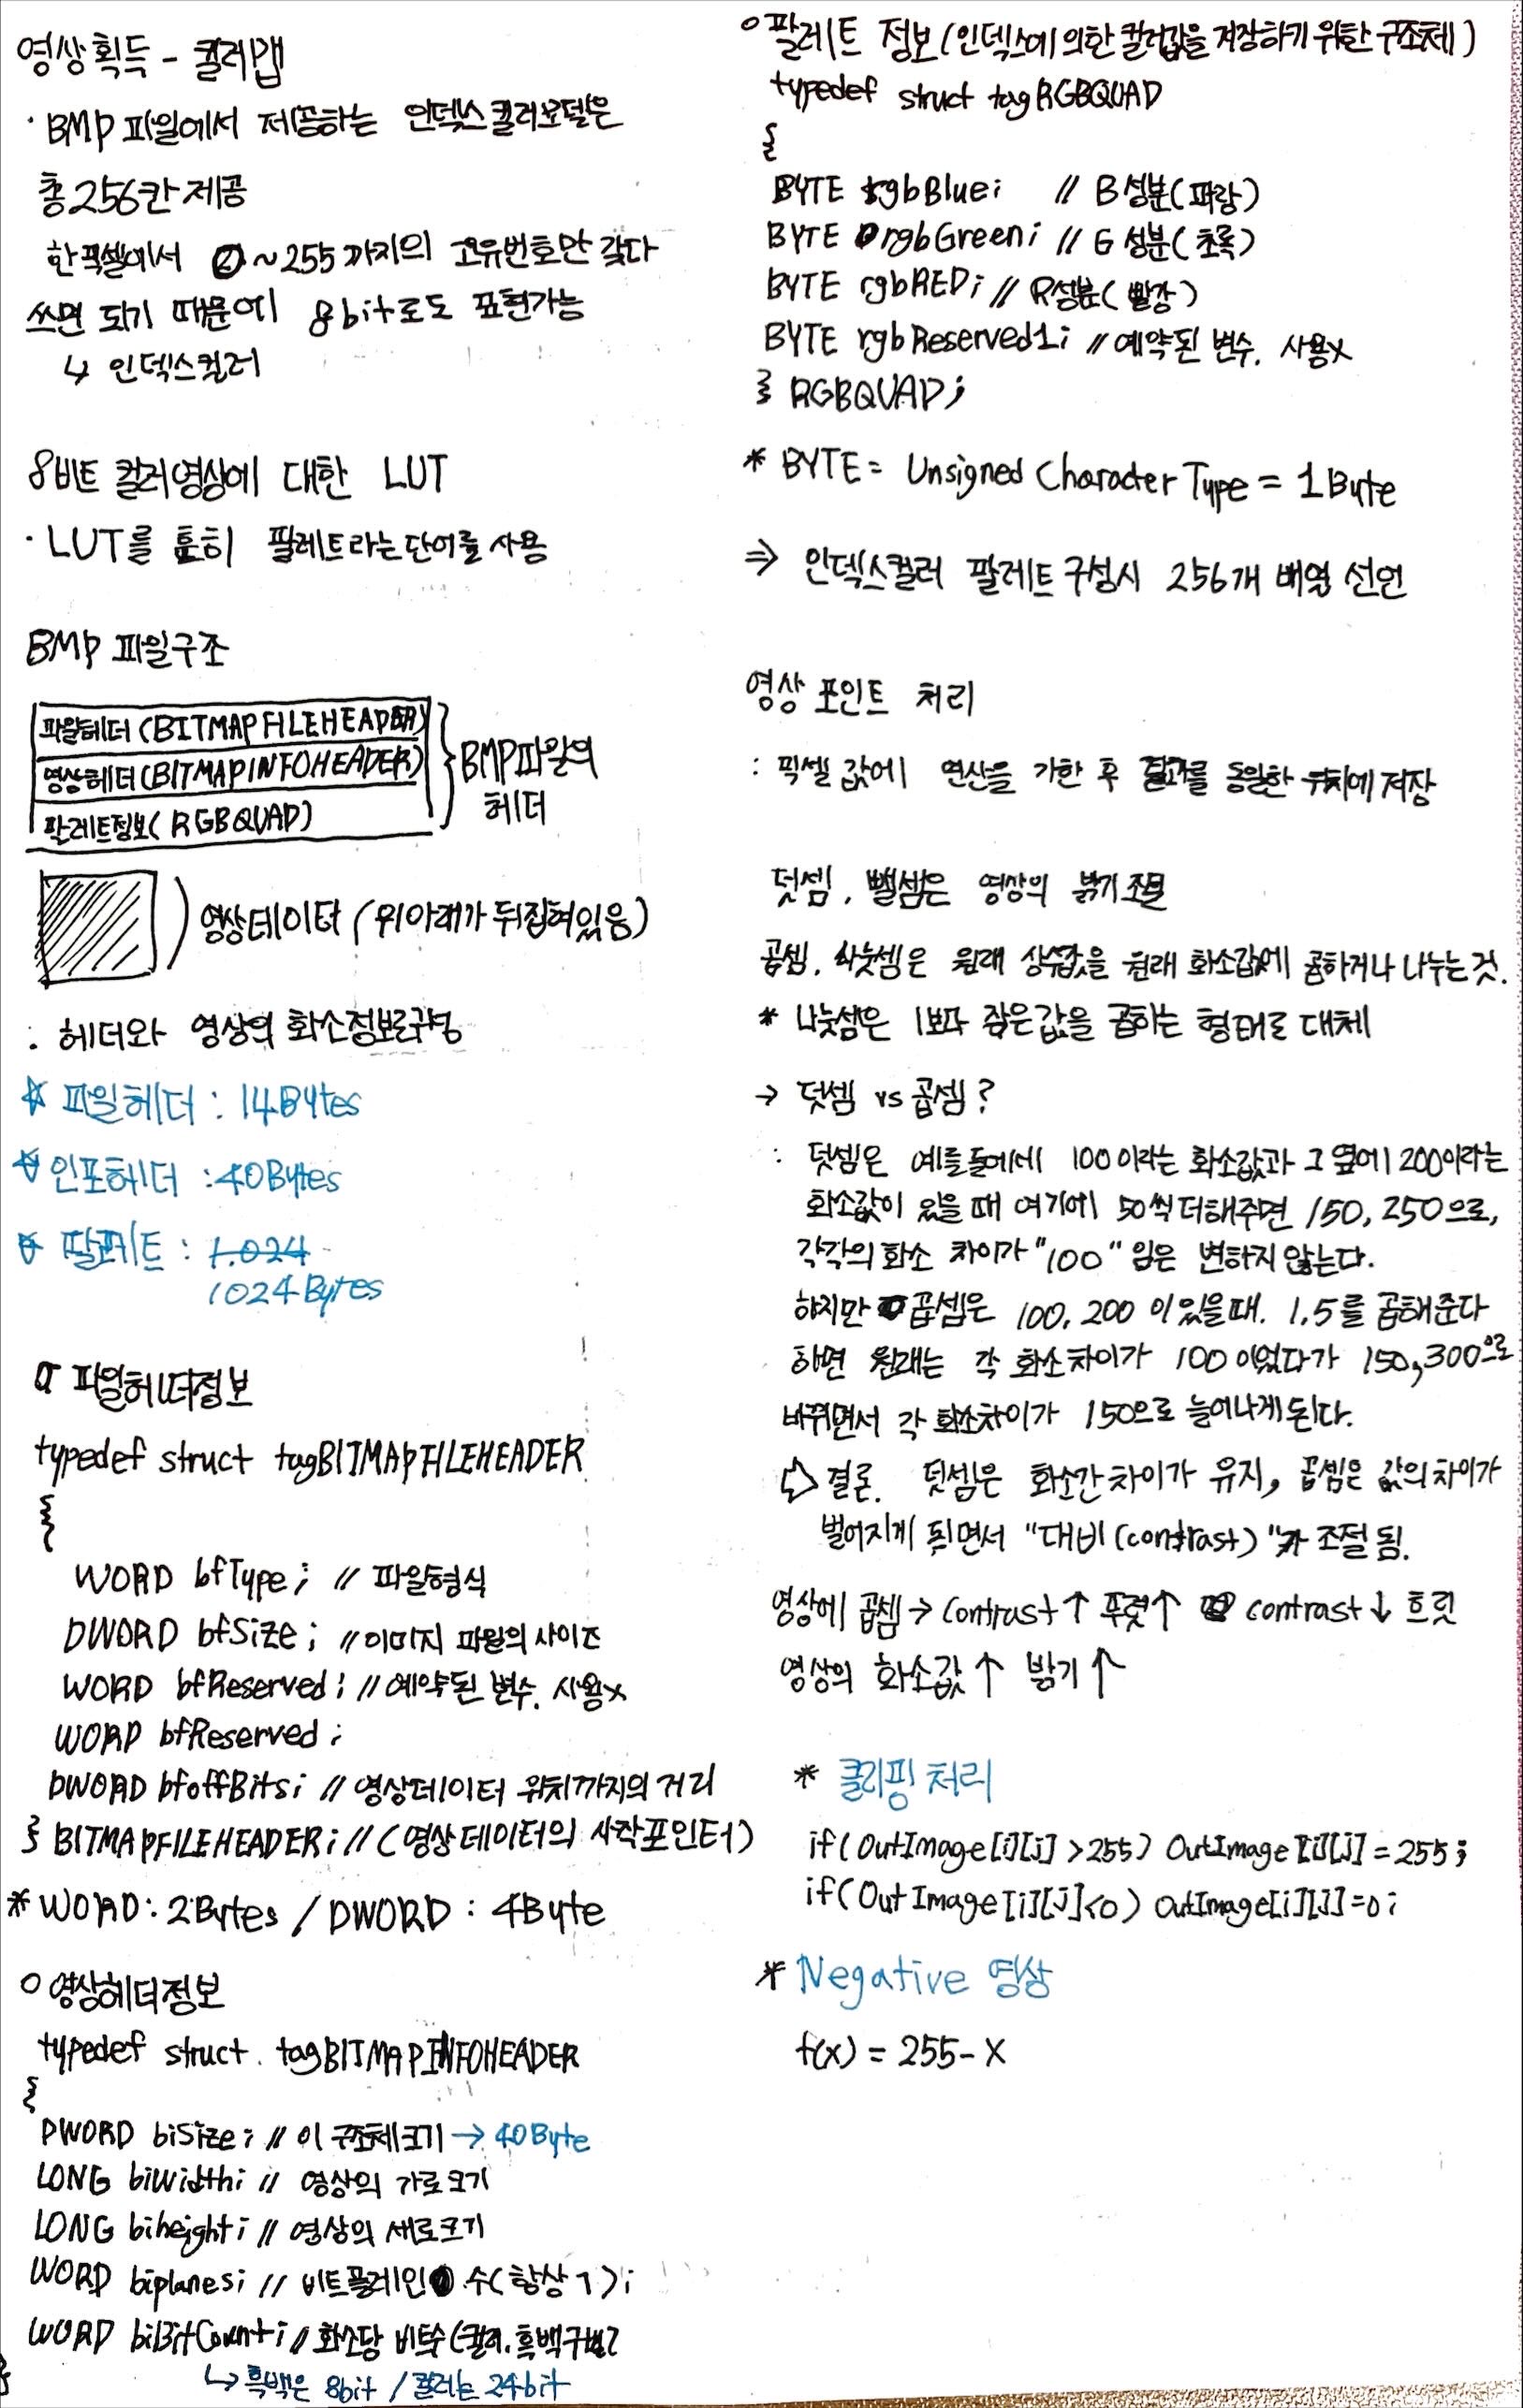 영상획득 - 컬러맵
· BMP 파일에서 제공하는 인덱스 컬러모델은
총 256칸 제공
한픽셀에서 0~255까지의 고유번호만 갖다
쓰면 되기 때문에 8bit로도 표현가능
↳ 인덱스컬러
8비트 컬러영상에 대한 LUT
· LUT를 흔히 팔레트라는 단어를 사용
BMP 파일구조
파일헤더 (BITMAPFILEHEADER)
영상헤더 (BITMAPINFOHEADER)
팔레트정보 (RGBQUAD)
BMP파일의
헤더
영상데이터 (위아래가 뒤집혀있음)
: 헤더와 영상의 화소정보로구성
☆ 파일헤더 : 14Bytes
☆ 인포헤더 : 40Bytes
☆ 팔레트 : 1.024
1024Bytes
파일헤더정보
typedef struct tagBITMAPFILEHEADER
{
WORD bfType; // 파일형식
DWORD bfSize; // 이미지 파일의 사이즈
WORD bfReserved; // 예약된 변수. 사용x
WORD bfReserved;
DWORD bfoffBits; // 영상데이터 위치까지의 거리
} BITMAPFILEHEADER; // (영상데이터의 시작포인터)
* WORD: 2Bytes / DWORD : 4Byte
○ 영상헤더정보
typedef struct. tagBITMAPINFOHEADER
{
DWORD biSize; // 이 구조체크기 → 40Byte
LONG biWidth; // 영상의 가로크기
LONG biheight; // 영상의 세로크기
WORD biplanes; // 비트플레인 수(항상 1);
WORD biBitCount; // 화소당 비트수 (컬러. 흑백구별)
↳ 흑백은 8bit / 컬러는 24bit
}
○ 팔레트 정보 (인덱스에 의한 컬러값을 저장하기 위한 구조체)
typedef struct tagRGBQUAD
{
BYTE rgbBlue; // B 성분(파랑)
BYTE rgbGreen; // G 성분(초록)
BYTE rgbRED; // R성분(빨강)
BYTE rgbReserved1; // 예약된 변수. 사용x
} RGBQUAD;
* BYTE = Unsigned Character Type = 1Byte
⇒ 인덱스컬러 팔레트 구성시 256개 배열 선언
영상 포인트 처리
: 픽셀 값에 연산을 가한 후 결과를 동일한 위치에 저장
덧셈, 뺄셈은 영상의 밝기 조절
곱셈, 나눗셈은 원래 상수값을 원래 화소값에 곱하거나 나누는 것.
* 나눗셈은 1보다 작은값을 곱하는 형태로 대체
→ 덧셈 vs 곱셈?
: 덧셈은 예를들에서 100이라는 화소값과 그 옆에 200이라는
화소값이 있을 때 여기에 50씩 더해주면 150, 250으로,
각각의 화소 차이가 "100" 임은 변하지 않는다.
하지만 곱셈은 100, 200 이 있을때. 1.5를 곱해준다
하면 원래는 각 화소차이가 100 이었다가 150, 300으로
바뀌면서 각 화소차이가 150으로 늘어나게 된다.
⇨ 결론. 덧셈은 화소간 차이가 유지, 곱셈은 값의 차이가
벌어지게 되면서 "대비(contrast)"가 조절됨.
영상에 곱셈 → contrast↑ 뚜렷↑ contrast↓ 흐릿
영상의 화소값↑ 밝기↑
* 클리핑 처리
if(OutImage[i][j] > 255) OutImage[i][j] = 255;
if(OutImage[i][j]<0) OutImage[i][j]=0;
* Negative 영상
f(x) = 255 - x